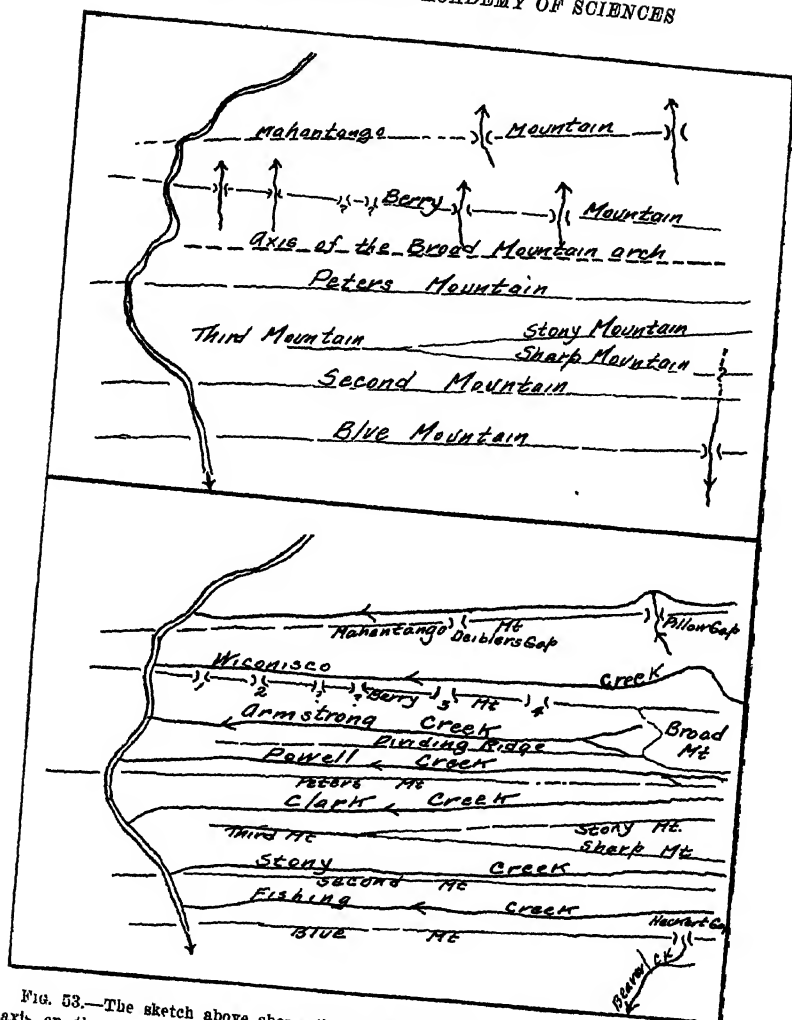 ACADEMY OF SCIENCES
Mahantango Mountain
Berry Mountain
? ?
axis of the Broad Mountain arch
Peters Mountain
Third Mountain
Stony Mountain
Sharp Mountain
?
Second Mountain
Blue Mountain
Mahantango Mt
Deiblers Gap
Pillow Gap
Wiconisco Creek
1 2 ? ? Berry 3 Mt 4
Armstrong Creek
Broad
Mt
Dividing Ridge
Powell Creek
Peters Mt
Clark Creek
Third Mt
Stony Mt.
Sharp Mt
Stony Creek
Second Mt
Fishing Creek
Heckert
Blue Mt
Beaver Ck
FIG. 53.—The sketch above